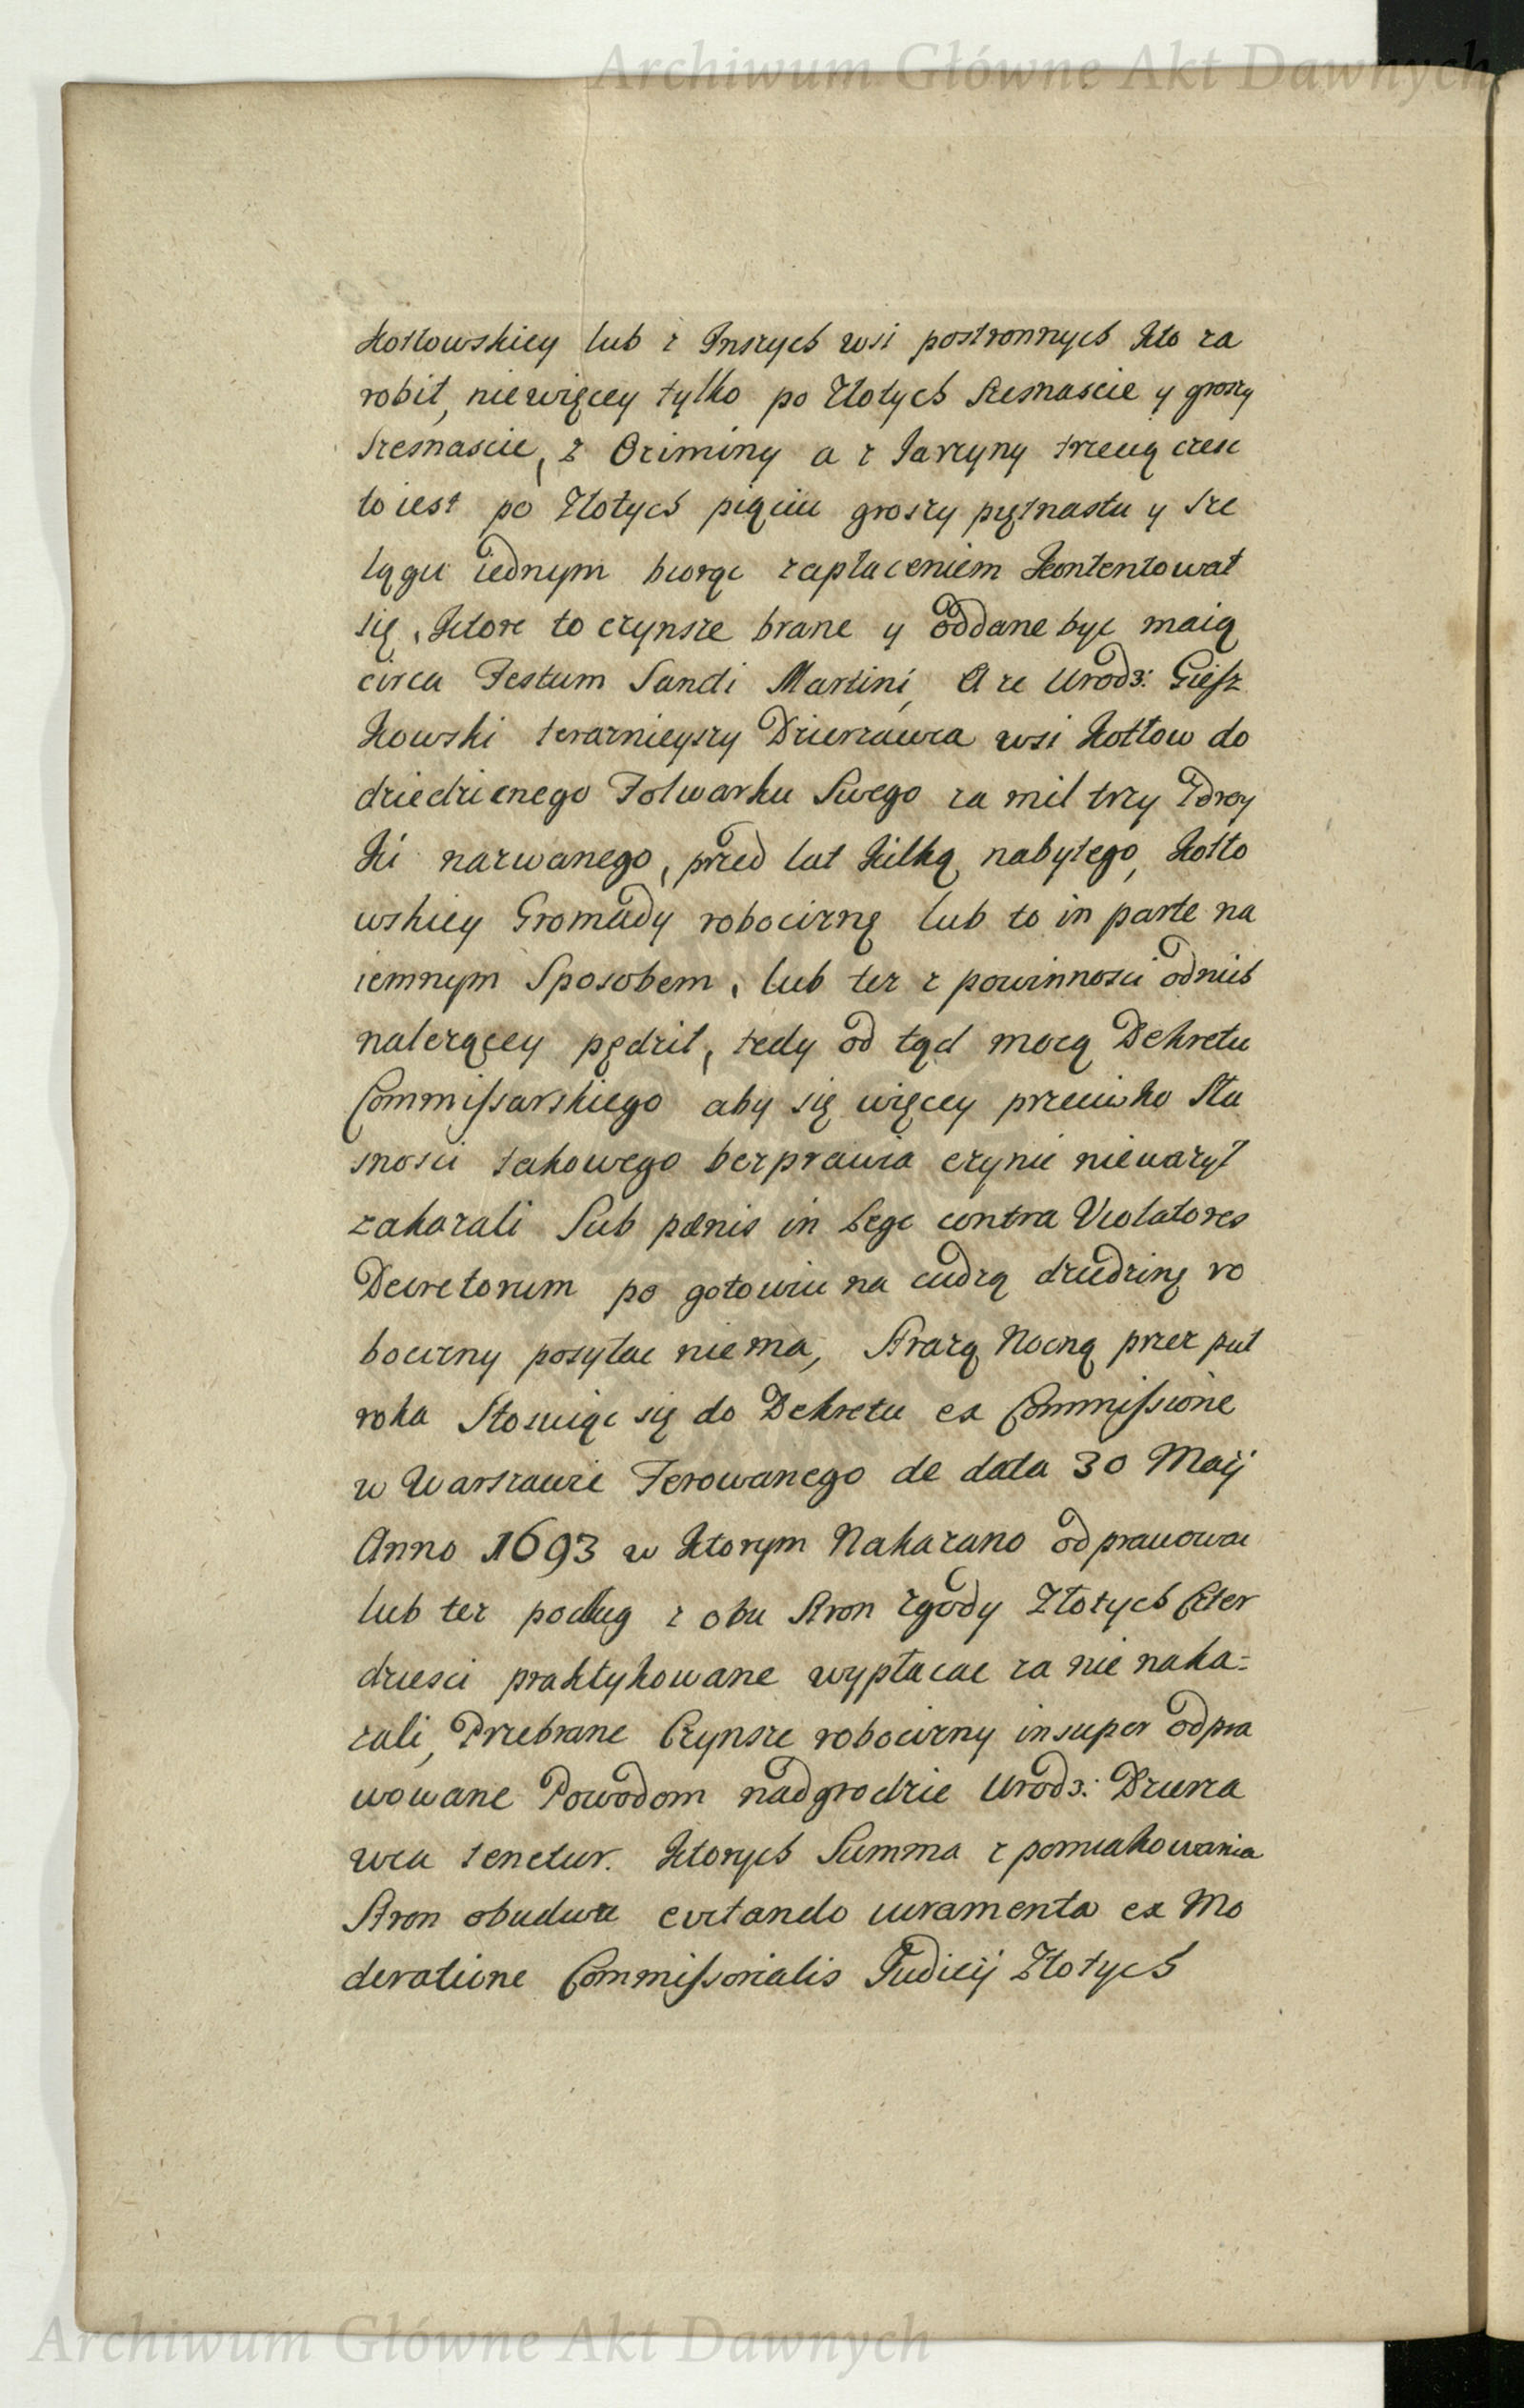 Archiwum Główne Akt Dawnych
Kotłowskiey lub z Inszych wsi postronnych kto za
robił, niewięcey tylko po Złotych Szesnascie y groszy
Szesnascie, z Oziminy a z Jarzyny trzecią czesc
to iest po Złotych pięciu groszy piętnastu y Sze
lągu iednym biorąc zapłaceniem kontentował
się, ktore to czynsze brane y oddane byc maią
circa Festum Sancti Martini, A ze Urodz: Giesz
kowski teraznieyszy Dzierzawca wsi Kotłow do
dziedzicnego Folwarku Swego za mil trzy Zdroy
ki nazwanego, przed lat kilką nabytego, Kotło
wskiey Gromady robociznę lub to in parte na
iemnym Sposobem, lub tez z powinnosci odnich
nalezącey pędził, tedy od tąd mocą Dekretu
Commissarskiego aby się więcey przeciwko Słu
snosci takowego bezprawia czynic nieważył
zakazali Sub pænis in Lege contra Violatores
Decretorum po gotowiu na cudzą dziedzinę ro
bocizny posyłac niema, Strazą Nocną przez puł
roka Stosuiąc się do Dekretu ex Commissione
w Warszawie Ferowanego de data 30 Maij
Anno 1693 w ktorym Nakazano odprawowac
lub tez podług z obu Stron zgody Złotych Czter
dziesci praktykowane wypłacac za nie naka=
zali, Przebrane Czynsze robocizny insuper odpra
wowane Powodom nadgrodzic Urodz: Dzierza
wca tenetur. Ktorych Summa z pomiakowania
Stron obudwu evitando iuramenta ex Mo
deratione Commissorialis Judicij Złotych
Archiwum Główne Akt Dawnych